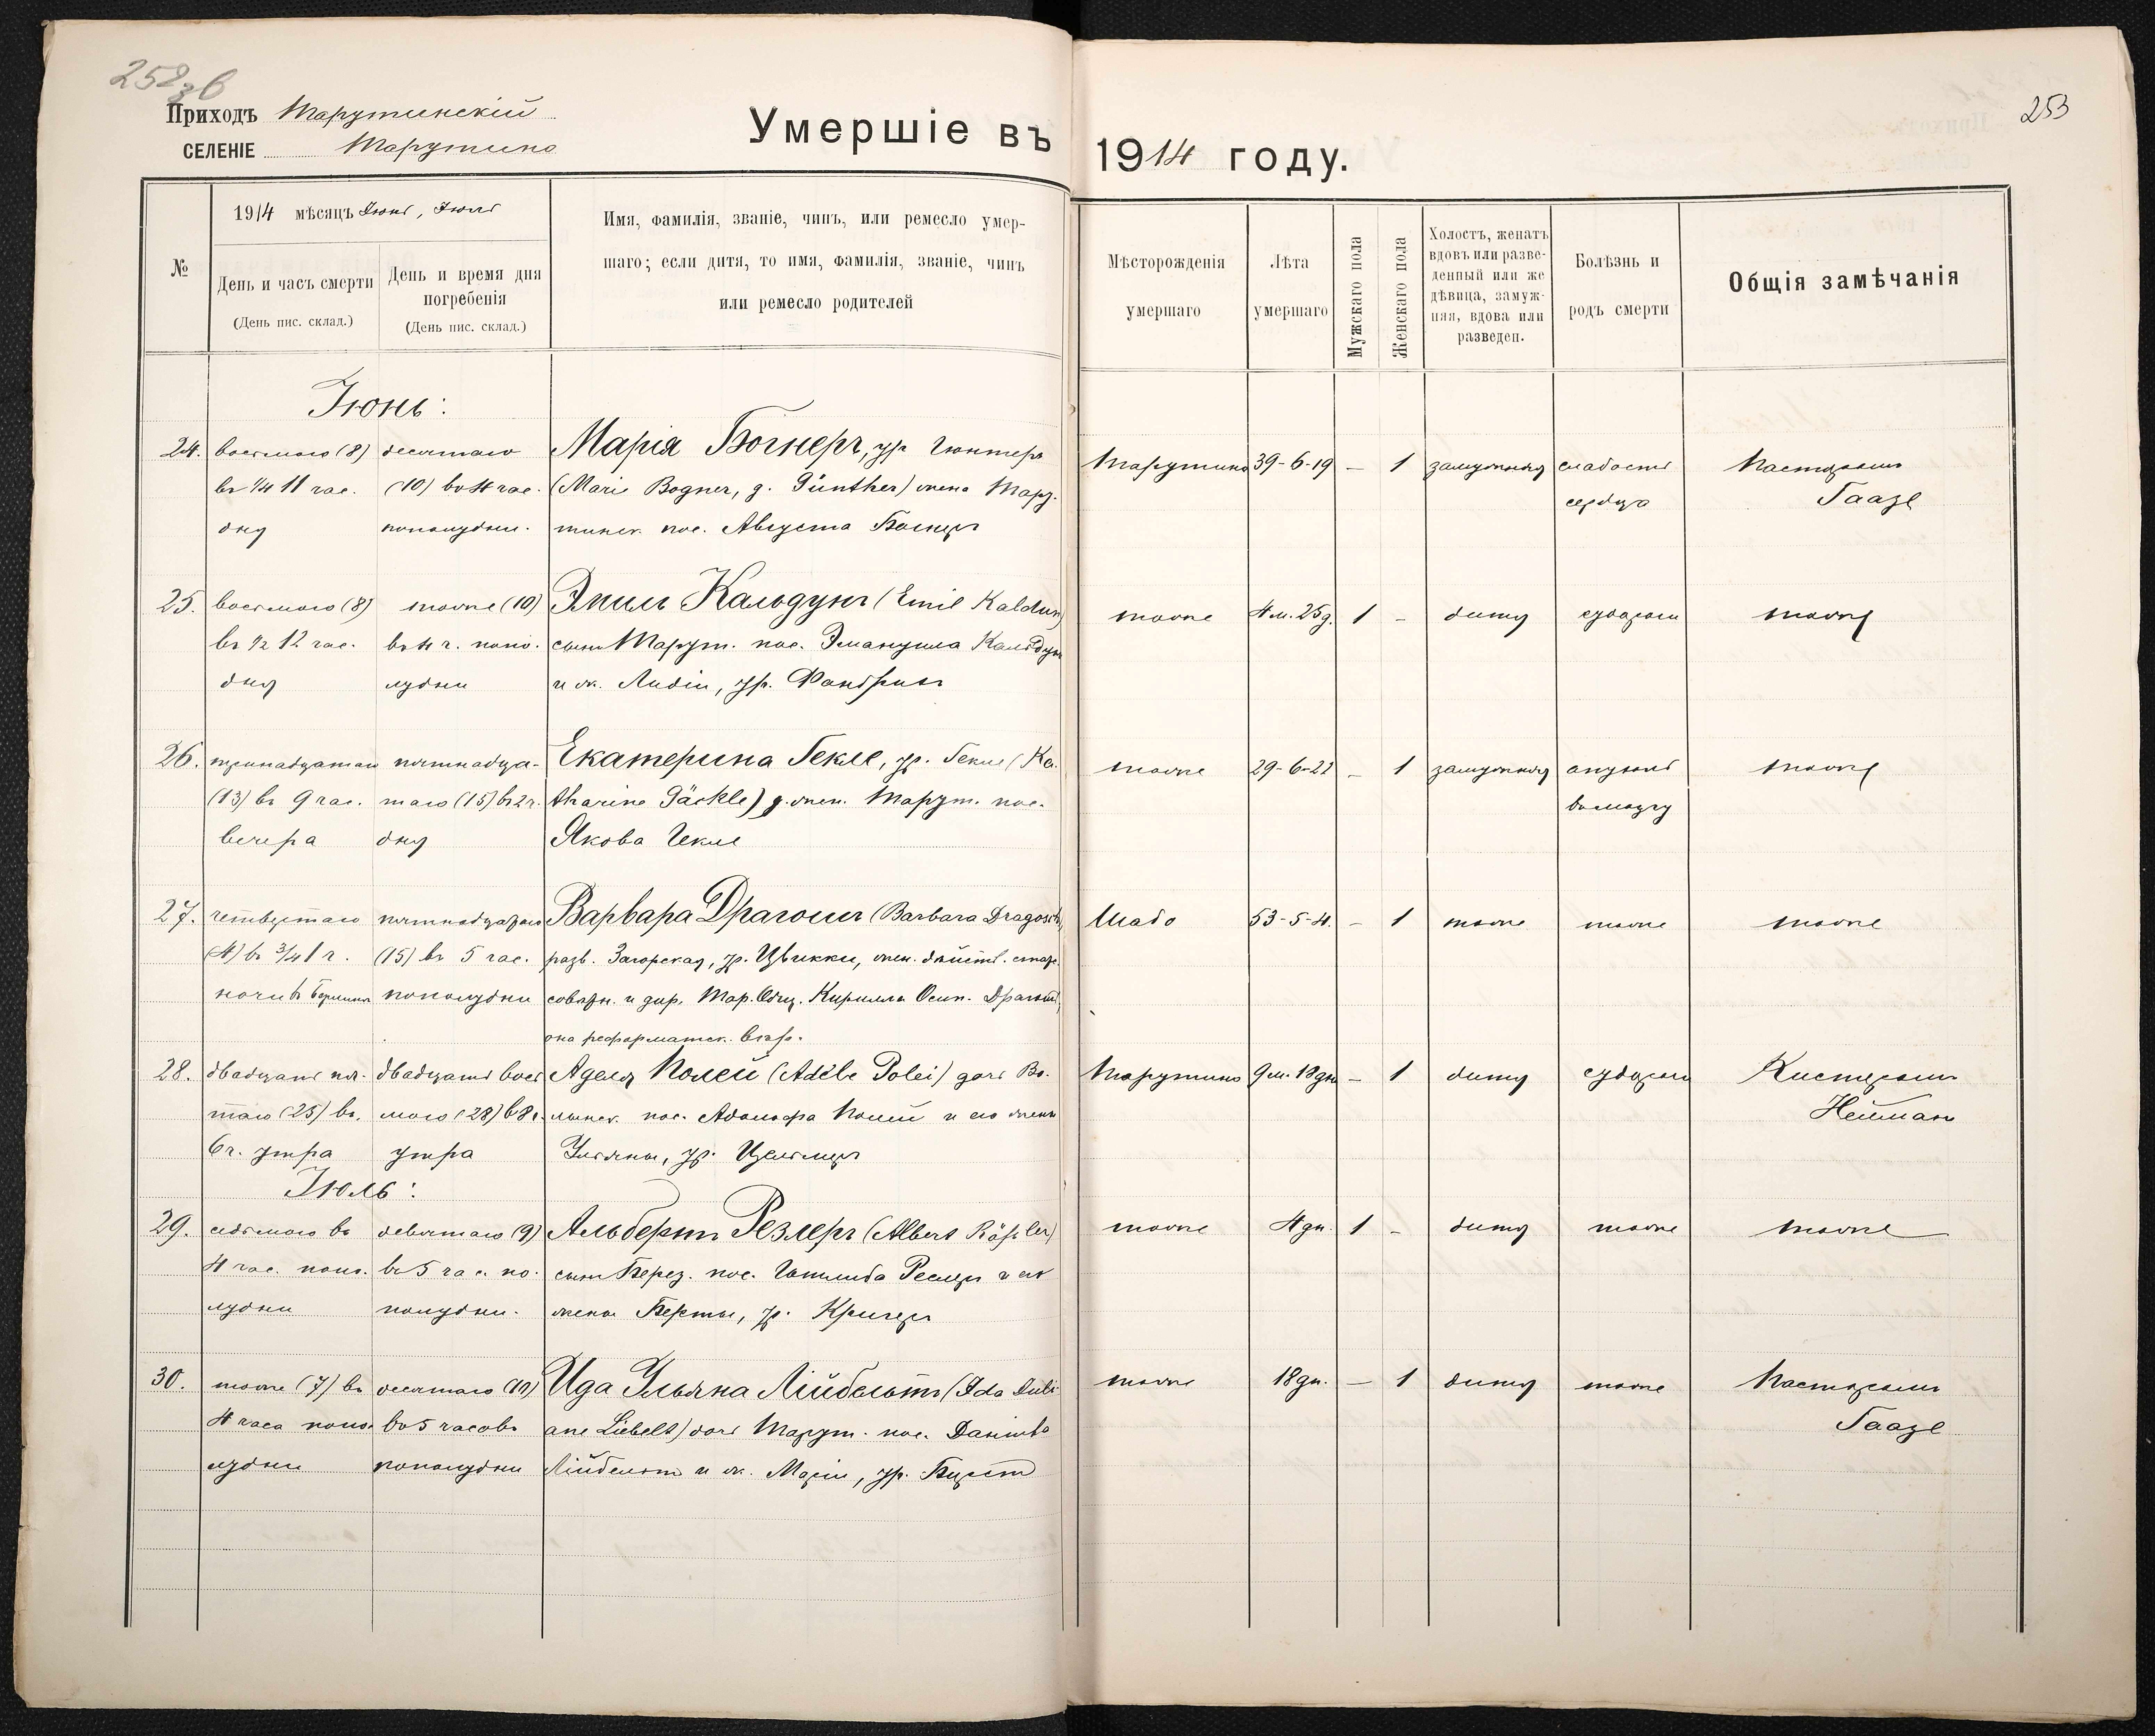 253
Приходъ Тарутинскій
СЕЛЕНІЕ Тарутино
Умершіе въ 1914 году.
№
1914 мѣсяцъ Іюнь, Іюль
День и часъ смерти
(День пис. склад.)
День и время дня
погребенія
(День пис. склад.)
Имя, фамилія, званіе, чинъ, или ремесло умер-
шаго; если дитя, то имя, фамилія, званіе, чинъ
или ремесло родителей
Мѣсторожденія
умершаго
Лѣта
умершаго
Мужскаго пола
Женскаго пола
Холостъ, женатъ
вдовъ или разве-
денный или же
дѣвица, замуж-
няя, вдова или
разведен.
Болѣзнь и
родъ смерти
Общія замѣчанія
Іюнь:
24. восьмого (8) десятаго Марія Богнеръ, ур. Гюнтеръ Тарутино 39-6-19 — 1 замужняя слабость Пасторомъ
въ 1/4 11 час. (10) въ 4 час. (Marie Bogner, g. Günther) жена Тару- сердца Гаазе
дня пополудни. тинск. пос. Августа Богнеръ
25. восьмого (8) тогоже (10) Эмиль Кальдунъ (Emil Kaldun) тоже 4 м. 25 д. 1 - дитя судороги тоже
въ 1/2 12 час. въ 4 ч. попо- сынъ Тарут. пос. Эмануила Кальдунъ
дня лудни и ж. Лидіи, ур.
26. тринадцатаго пятнадца- Екатерина Гекле, ур. Гекле (Ka- тоже 29-6-21 — 1 замужняя
(13) въ 9 час. таго (15) въ 2 ч. tharine Jäckle) жен. Тарут. пос.
вечера дня Якова Гекле
27. четвертаго пятнадцатаго Варвара Драгошъ (Barbara Dragosch, Шабо 53-5-4. — 1 тоже тоже тоже
(4) въ 3/4 1 ч. (15) въ 5 час. разв. Загорская, ур. Цвикки, жен. дѣйств. статс.
ночи въ пополудни совѣтн. и дир. Тар. Кирилла Осип. Драгошъ,
она реформатск. вѣр.
28. двадцать пя- двадцать вось- Аделя Полей (Adéle Polei) дочь Тарутино 9 м. 18 дн. — 1 дитя судороги Кистеромъ
таго (25) въ мого (28) въ 8 ч. пос. Адольфа Полей и его жены Нейманъ
6 ч. утра утра Ульяны, ур.
Іюль:
29. седьмого въ девятаго (9) Альбертъ Резлеръ (Albert Räßler) тоже 4 дн. 1 - дитя тоже тоже
4 час. попо- въ 5 час. по- сынъ Берез. пос. Готлиба Реслеръ и его
лудни полудни. жены Берты, ур. Кригеръ
30. тоже (7) въ десятаго (10) Ида Ульяна Лійбельтъ (Ida Juli- тоже 18 дн. — 1 дитя тоже Пасторомъ
4 часа попо- въ 5 часовъ ane Liebelt) дочь Тарут. пос. Даніила Гаазе
лудни пополудни Лійбельтъ и ж. Маріи, ур.